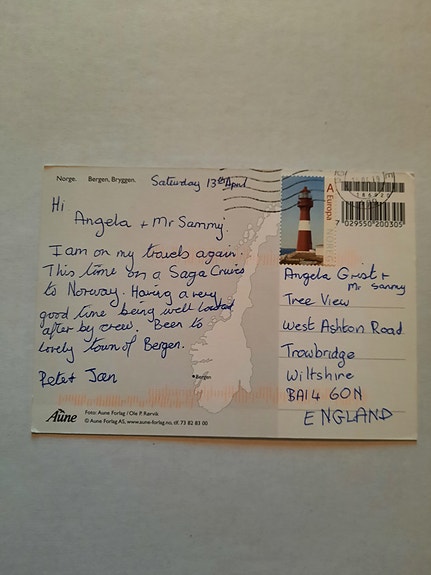 Norge. Bergen, Bryggen.
Saturday 13th April
Hi
Angela + Mr Sammy
I am on my travels again.
This time on a Saga Cruise
to Norway. Having a very
good time being well looked
after by crew. Been to
lovely town of Bergen.
Pete + Jan
Bergen
Aune
Foto: Aune Forlag / Ole P. Rørvik
© Aune Forlag AS, www.aune-forlag.no, tlf. 73 82 83 00
A Europa
7 029550 200305
Angela Grist +
Mr Sammy
Tree View
West Ashton Road
Trowbridge
Wiltshire
BA14 6DN
ENGLAND